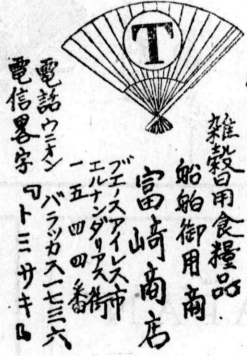 T
雑穀日用食糧品
船舶御用商
富崎商店
ブエスアイレス市
エルナンダリアス街
一五四四番
電話ウニオン
バラッカス一七三六
電信畧字『トミサキ』